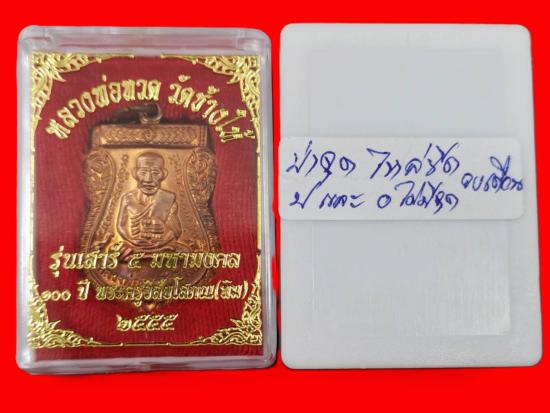 หลวงพ่อทวด วัดช้างให้
รุ่นเสาร์ ๕ มหามงคล
๑๐๐ ปี พระครูวิสัยโสภณ(ทิม)
๒๕๕๕
บ่าจุด ไหล่ขีด
ป และ อ ไม่มีจุด